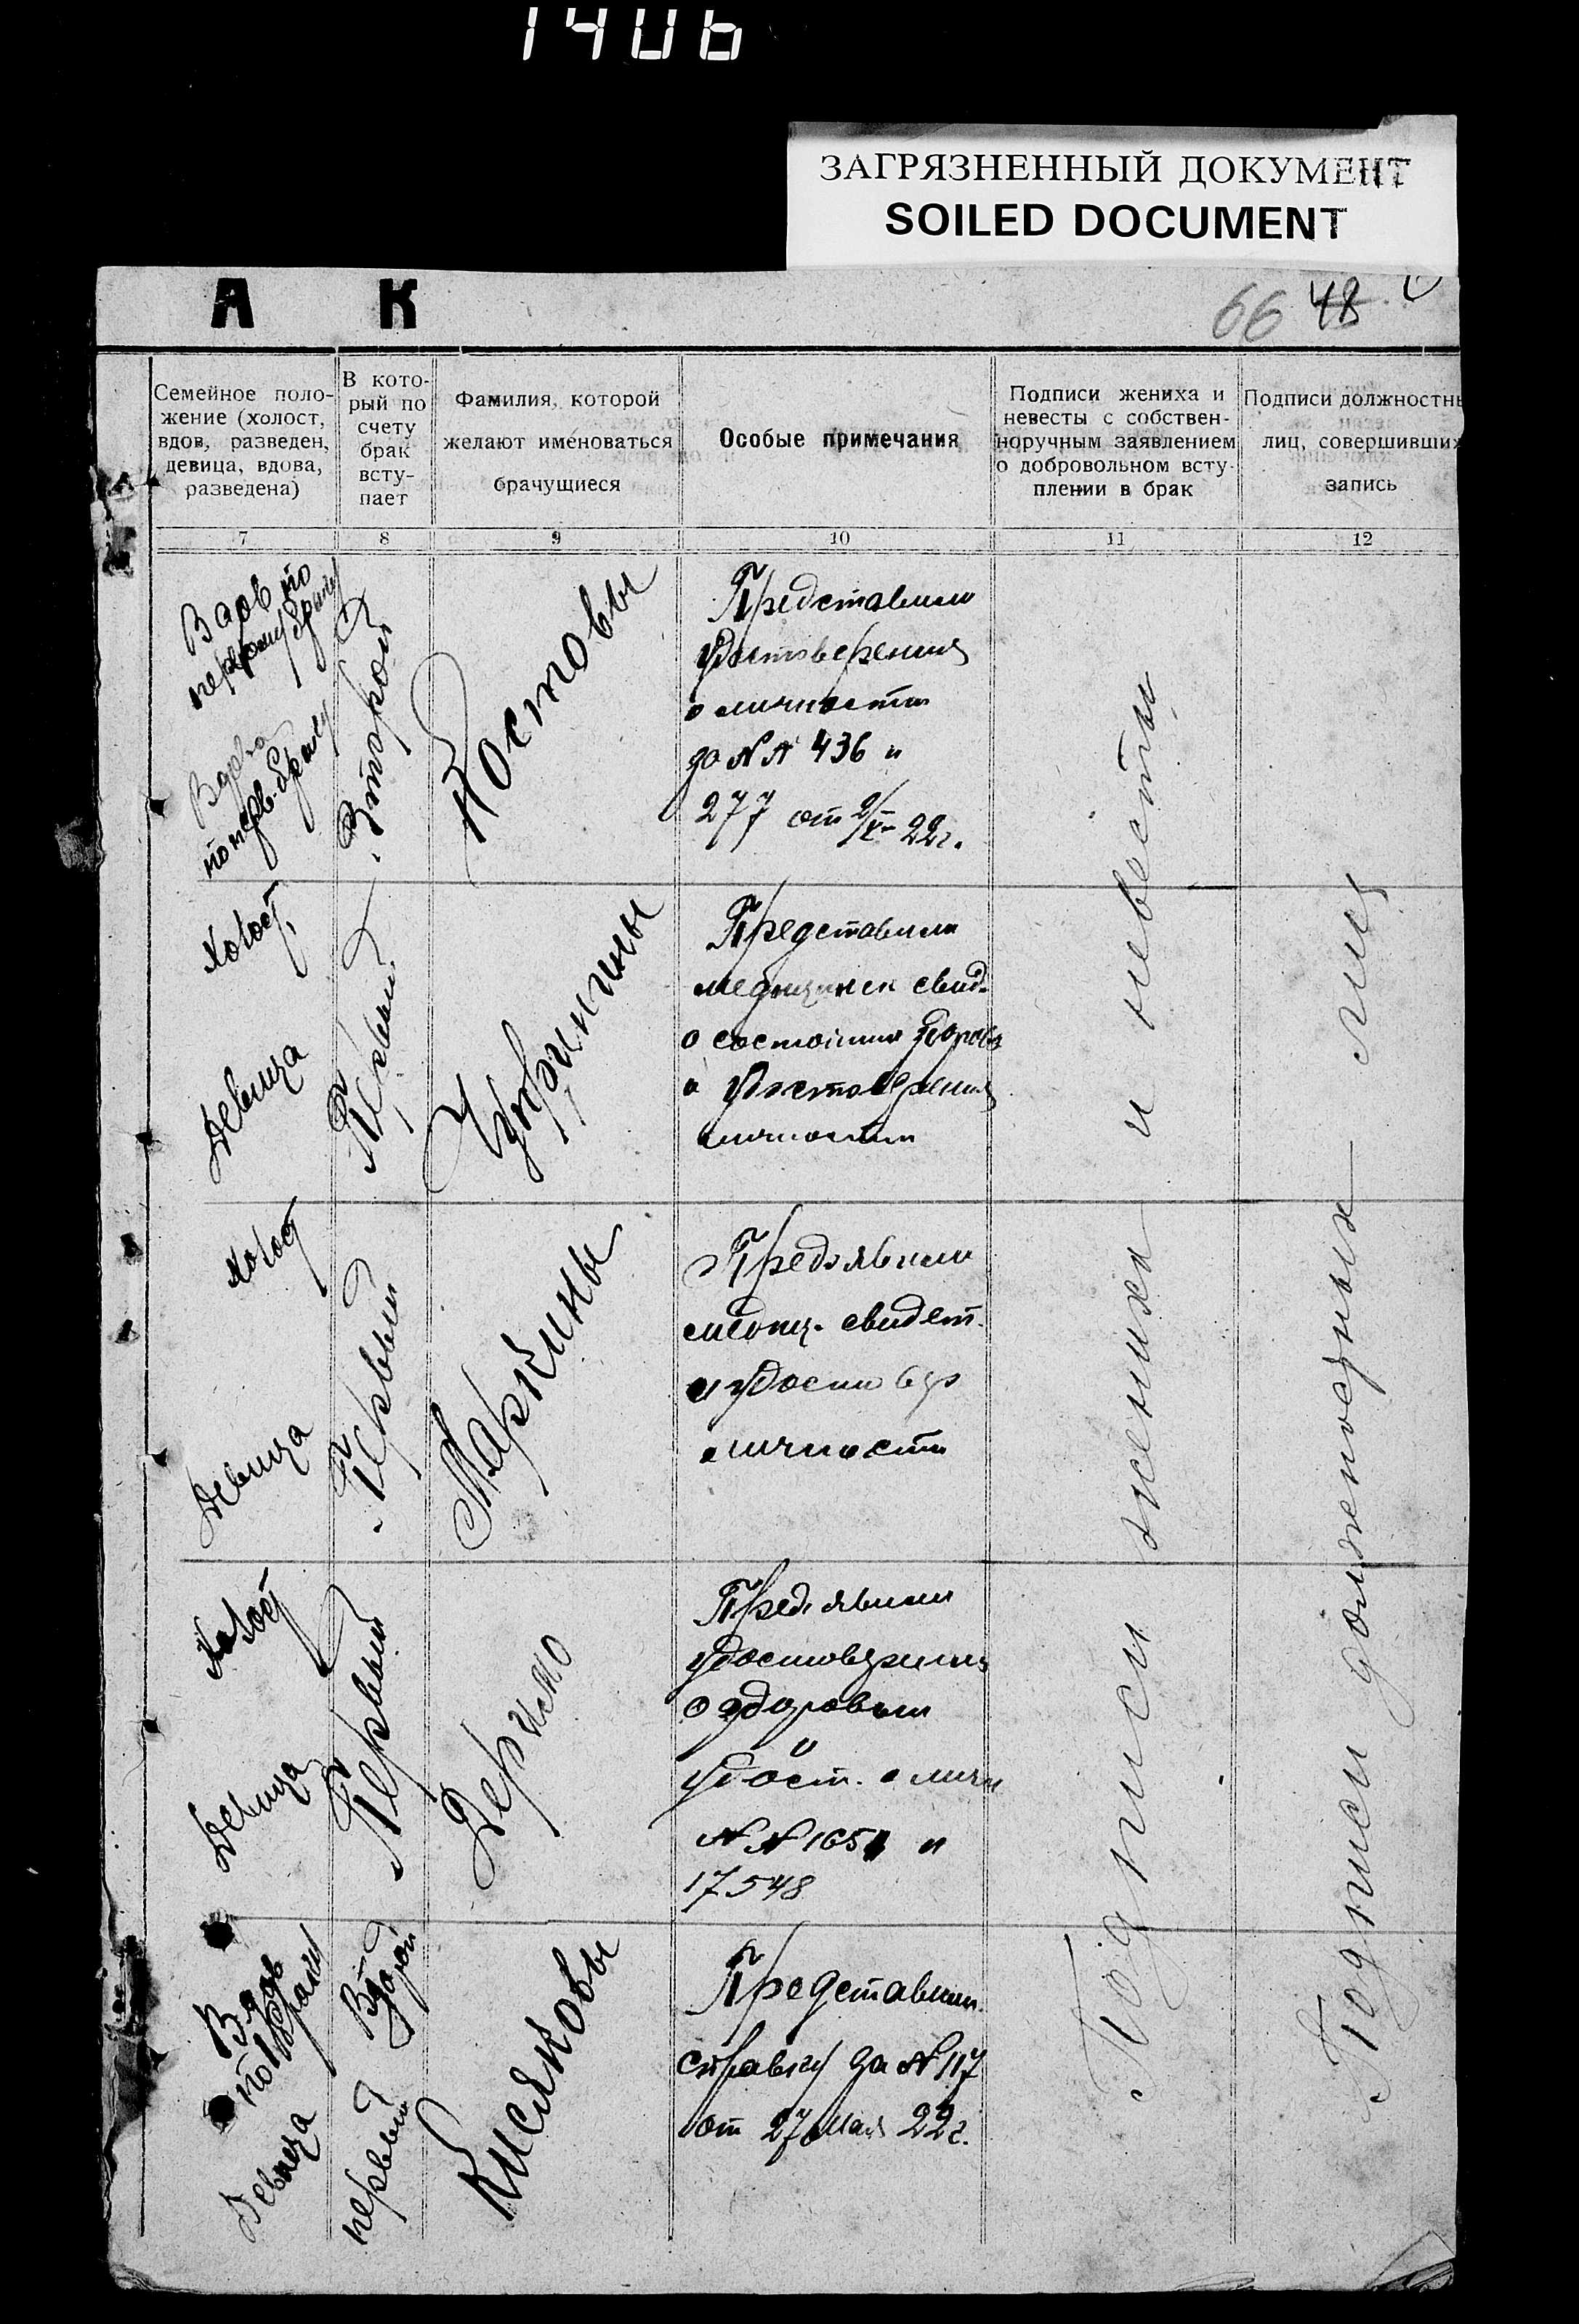 1406
ЗАГРЯЗНЕННЫЙ ДОКУМЕНТ
SOILED DOCUMENT
А К
66 48
Семейное поло-
жение (холост,
вдов, разведен,
девица, вдова,
разведена)
В кото-
рый по
счету
брак
всту-
пает
Фамилия, которой
желают именоваться
брачущиеся
Особые примечания
Подписи жениха и
невесты с собствен-
норучным заявлением
о добровольном всту-
плении в брак
Подписи должностны
лиц, совершивших
запись
7 8 9 10 11 12
Вдов по
первому браку
Вдова
по перв. браку
Второй
Костовы
Представили
удостоверения
о личности
за № № 436 и
277 от 2/V- 22г.
Холост
Девица
Первый
Представили
медицинск свид.
о состоянии здоров
и удостоверения
личности
Холост
Девица
Первый
Маркины
Предъявили
медиц. свидет.
и удостовер
личности
Холост
Девица
Первый
Дерило
Предъявили
удостоверения
о здоровьи
и
удост. о личн
№ № 1651 и
17548
Вдов
по I браку
Девица
Второй
первый
Кисляковы
Представили
справку за № 117
от 27 мая 22г.
Подписи жениха и невесты
Подписи должностных лиц